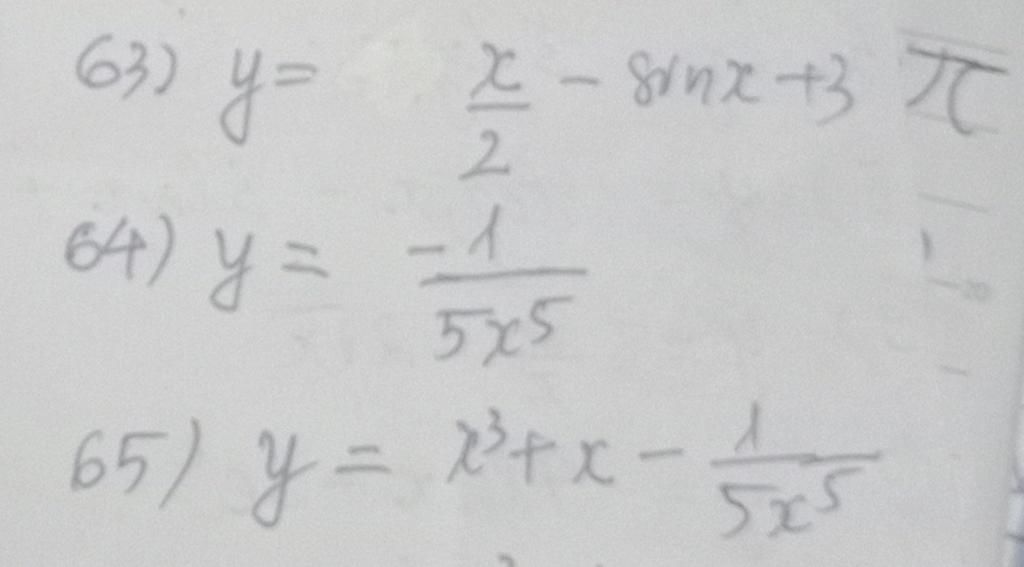 63) y = x/2 - sinx + 3π
64) y = -1/5x⁵
65) y = x³ + x - 1/5x⁵